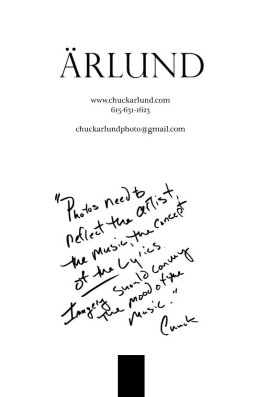 ÄRLUND
www.chuckarlund.com
615-631-1623
chuckarlundphoto@gmail.com
"Photos need to
reflect the artist,
the music, the concept
of the Lyrics.
Imagery should convey
the mood of the
music."
Chuck